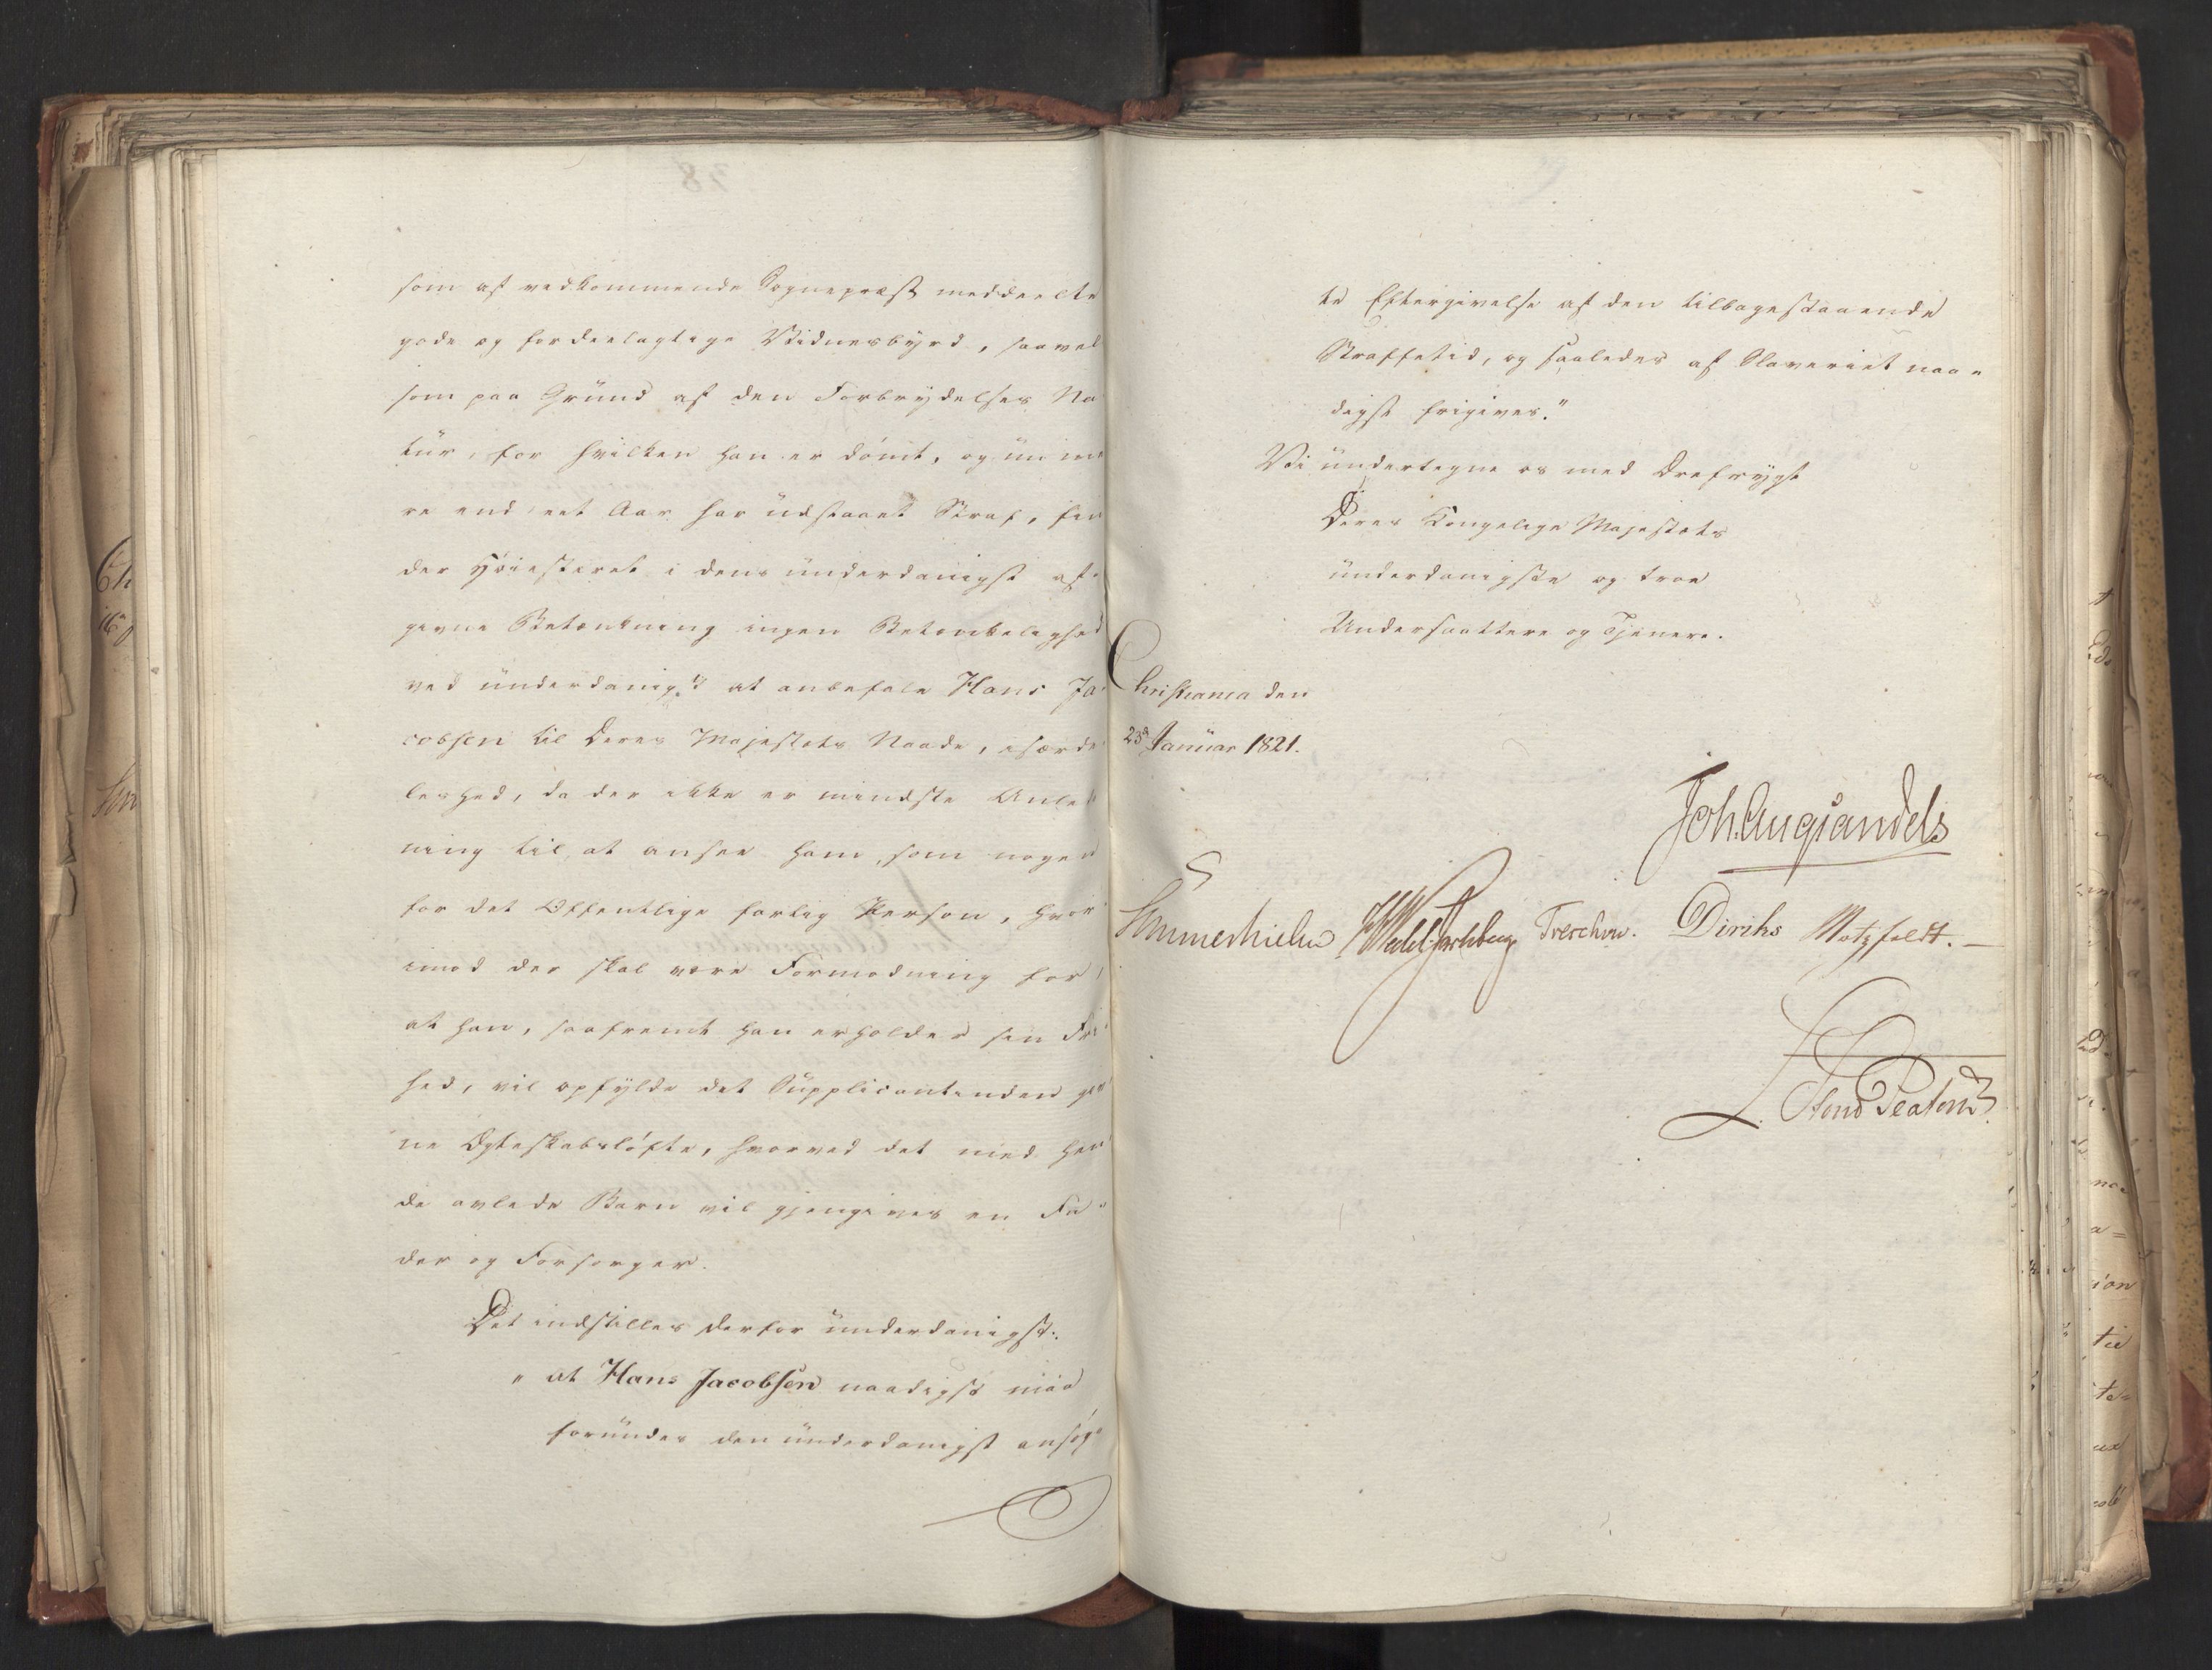 som af vedkommende Sognepræst meddeelte
gode og fordeelagtige Vidnesbyrd, saavel
som paa Grund af den Forbrydelses Na
tur, for hvilken han er dömt, og nu me
re end eet Aar har udstaaet Straf, fin
der Höiesteret i dens underdanigst af-
givne Betænkning ingen Betænkelighed
ved underdanigst at anbefale Hans Ja-
cobsen til Deres Majestæts Naade, isærde-
leshed, da der ikke er mindste Anled
ning til, at ansee ham, som nogen
for det Offentlige farlig Person, hvor
imod der skal være Formodning for,
at han, saafremt han erholder sin Fri-
hed, vil opfylde det Supplicantinden giv
ne Ægteskabslöfte, hvorved det med hen
de avlede Barn vil gjengives en Fa-
der og Forsørger.
Det indstilles derfor underdanigst:
" at Hans Jacobsen naadigst maa
forundes den underdanigst ansög-
te Eftergivelse af den tilbagestaaende
Straffetid, og saaledes af Slaveriet naa-
digst frigives."
Vi undertegne os med Ærefrygt
Deres Kongelige Majestæts
underdanigste og troe
Undersaattere og Tjenere.
Christiania den
23d Januar 1821.
Joh. Aug Sandels
Sommerhielm Wedel Jarlsberg Treschow. Diriks Motzfeldt.